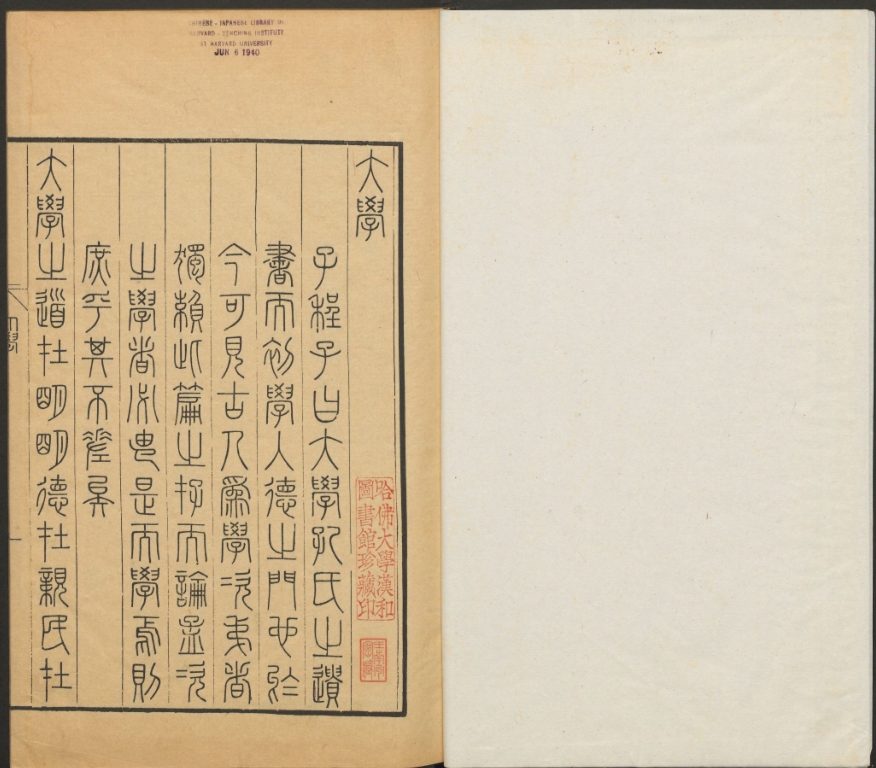 CHINESE - JAPANESE LIBRARY OF
HARVARD - YENCHING INSTITUTE
AT HARVARD UNIVERSITY
JUN 6 1940
大學
子程子曰大學孔氏之遺
書而初學入德之門也於
今可見古人爲學次弟者
獨賴此篇之存而論孟次
之學者必由是而學焉則
庶乎其不差矣
大學之道在明明德在親民在
哈佛大學漢和
圖書館珍藏印